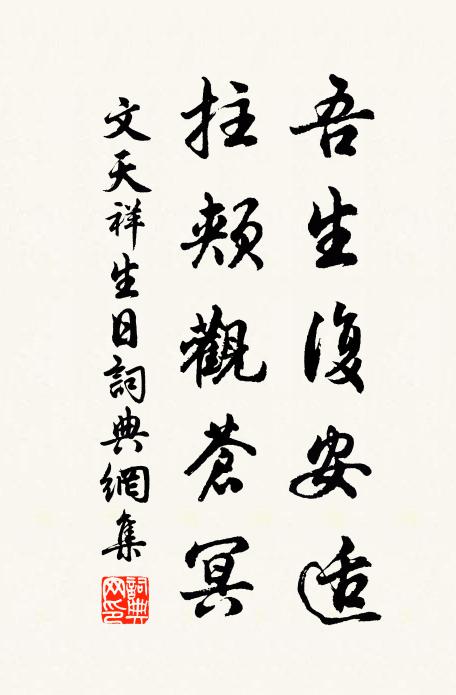 吾生復安适
拄頰觀蒼冥
文天祥生日詞典網集
詞典网印